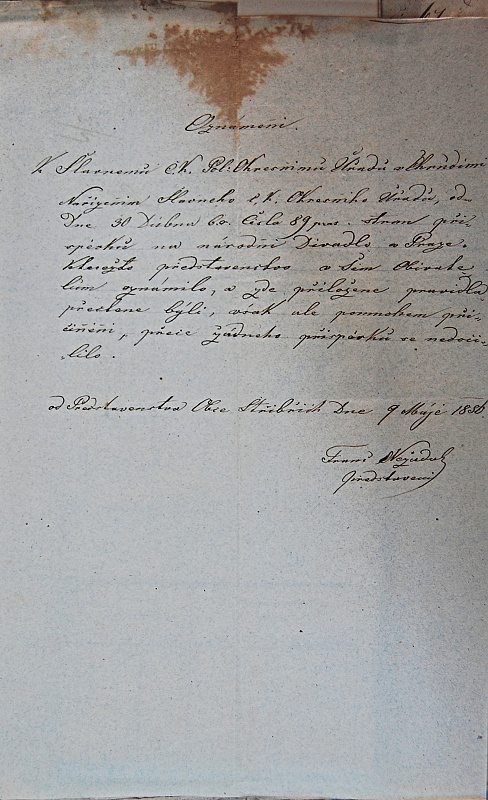 Oznámeni.
K Slavnemu CK. Pol: Okresnimu Uřadu v Chrudimi
Nařizenim Slavneho C. K. Okresniho Uřadu, od
Dne 30 Dubna b. r. Čisla 89 pres. stran při-
spěvků na národni Divadlo v Praze.
kterežto představenstvo všem Obivate
lům oznámilo, a zde přiložene pravidla
přečtene býli, však ale pommohem při-
činěni, přece žádneho přispěvku se nedoci-
lilo.
od Predstavenstva Obce Dne 9 Máje 1856.
Franz
Představeni